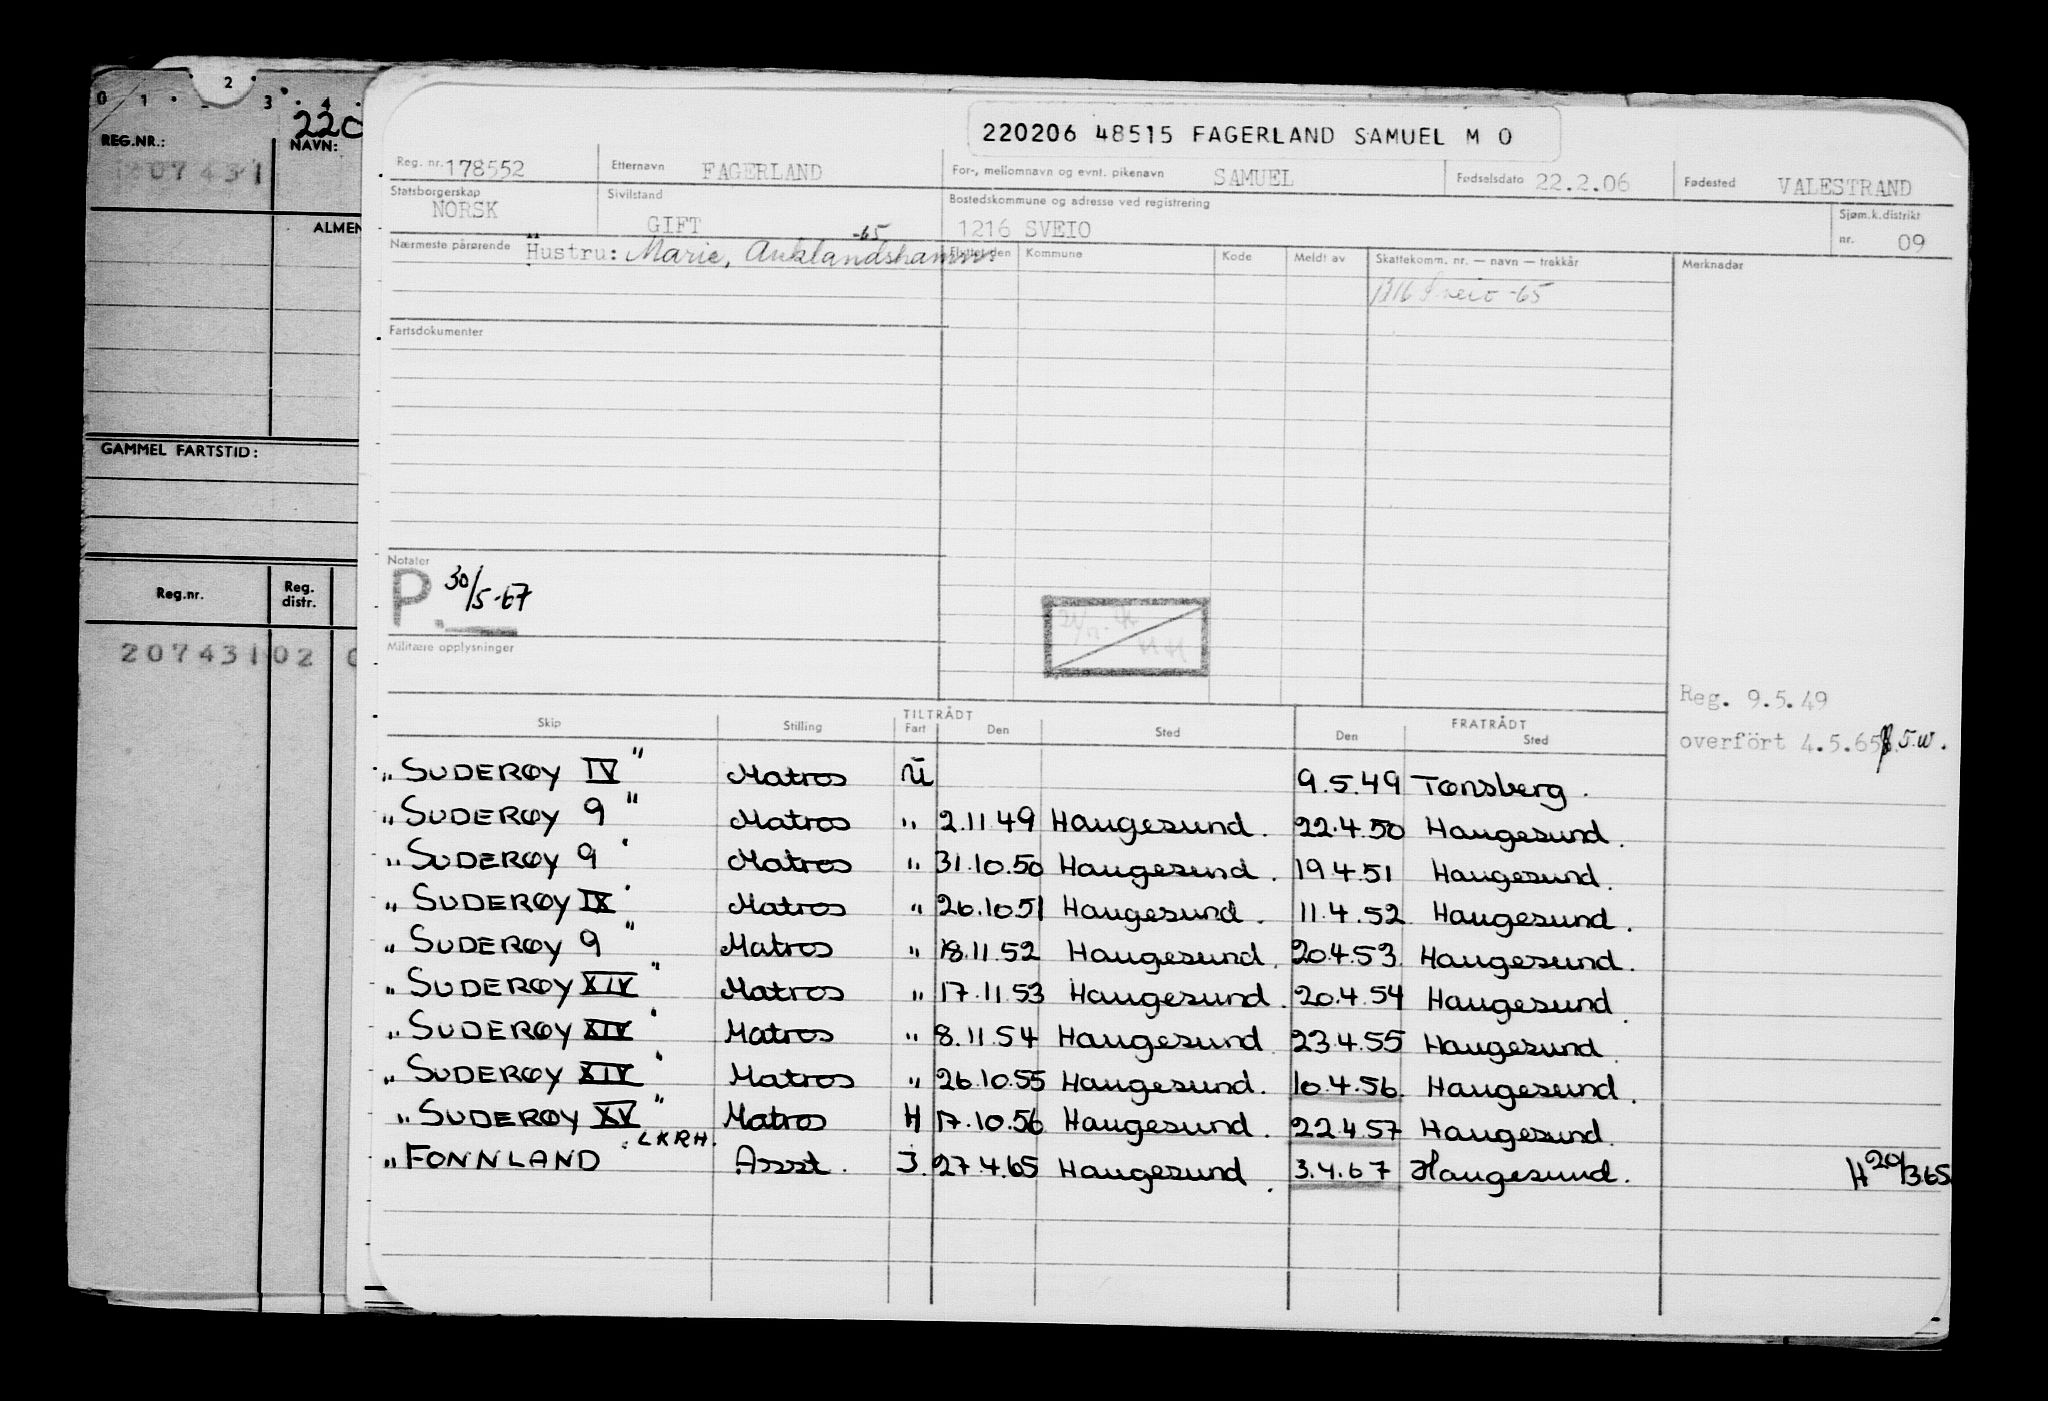 2
0 1 2 3 4
REG.NR.:
220
NAVN:
207431
ALMEN
GAMMEL FARTSTID:
Reg.nr. Reg. distr.
207431 02
220206 48515 FAGERLAND SAMUEL M O
Reg. nr. 178552 Etternavn FAGERLAND For-, mellomnavn og evnt. pikenavn SAMUEL Fødselsdato 22.2.06 Fødested VALESTRAND
Statsborgerskap NORSK Sivilstand GIFT Bostedskommune og adresse ved registrering 1216 SVEIO Sjøm.k.distrikt nr. 09
-65
Nærmeste pårørende Hustru: Marie, Auklandshamn. Flyttet den Kommune Kode Meldt av Skattekomm. nr. — navn — trekkår Merknader
1216 Sveio -65
Fartsdokumenter
Notater
P. 30/5-67
Militære opplysninger
Reg. 9.5.49
overført 4.5.65
TILTRÅDT FRATRÅDT
Skip Stilling Fart Den Sted Den Sted
„SUDERØY IV" Matros U 9.5.49 Tønsberg.
„SUDERØY 9" Matros " 2.11.49 Haugesund. 22.4.50 Haugesund.
„SUDERØY 9" Matros " 31.10.50 Haugesund. 19.4.51 Haugesund.
„SUDERØY IX" Matros " 26.10.51 Haugesund. 11.4.52 Haugesund.
„SUDERØY 9" Matros " 18.11.52 Haugesund. 20.4.53 Haugesund.
„SUDERØY XIV" Matros " 17.11.53 Haugesund. 20.4.54 Haugesund.
„SUDERØY XIV" Matros " 8.11.54 Haugesund. 23.4.55 Haugesund.
„SUDERØY XIV" Matros " 26.10.55 Haugesund. 10.4.56. Haugesund.
„SUDERØY XV" Matros H 17.10.56 Haugesund. 22.4.57 Haugesund.
„FONNLAND" LKRH. Asst. J. 27.4.65 Haugesund. 3.4.67 Haugesund. H 20/3.65